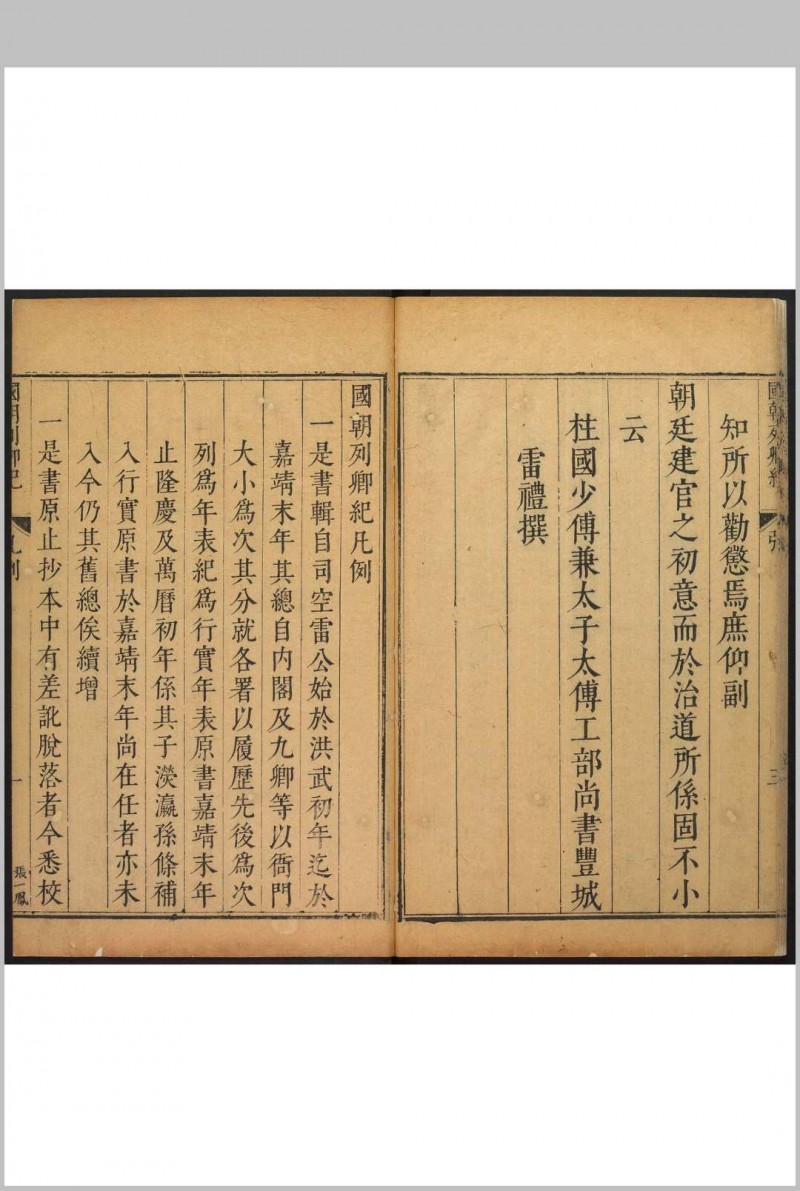 國朝列卿紀
引
三
知所以勸懲焉庶仰副
朝廷建官之初意而於治道所係固不小
云
柱國少傅兼太子太傅工部尚書豐城
雷禮撰
國朝列卿紀凡例
一是書輯自司空雷公始於洪武初年迄於
嘉靖末年其總自內閣及九卿等以衙門
大小為次其分就各署以履歷先後為次
列為年表紀為行實年表原書嘉靖末年
止隆慶及萬曆初年係其子濙瀛孫條補
入行實原書於嘉靖末年尚在任者亦未
入今仍其舊總俟續增
一是書原止抄本中有差訛脫落者今悉校
國朝列卿紀
凡例
一
張一鳳